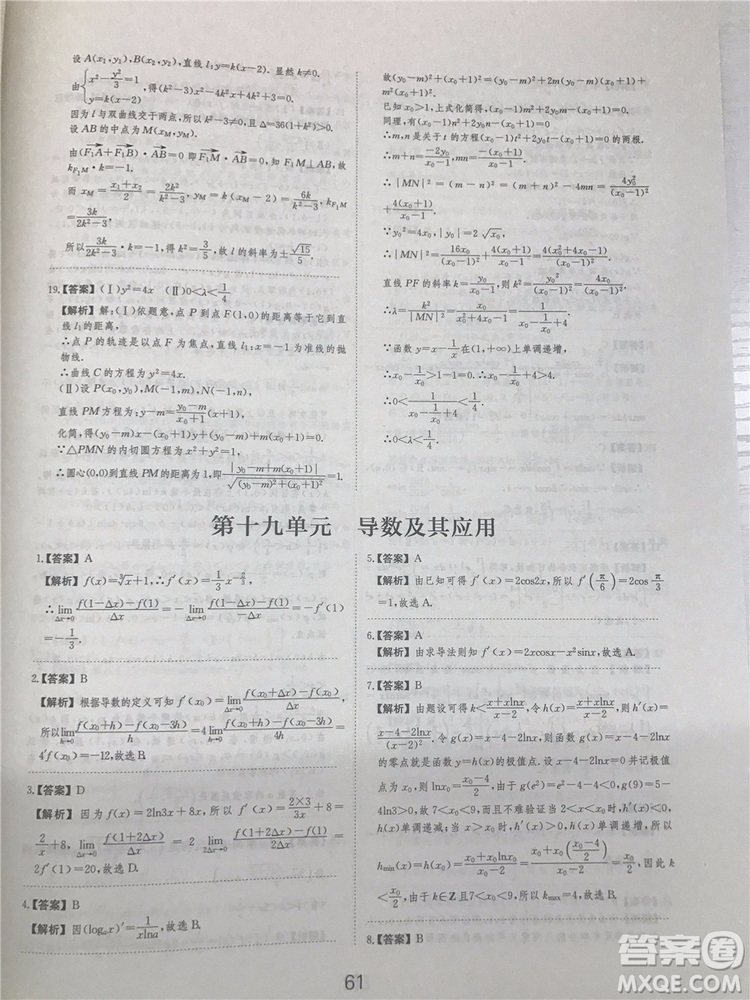 设 A(x₁,y₁),B(x₂,y₂),直线 l:y=k(x-2). 显然 k≠0.
由{x²-y²/3=1
y=k(x-2) ,得(k²-3)x²-4k²x+4k²+3=0.
因为 l 与双曲线交于两点,所以 k²-3≠0 且 Δ=36(1+k²)>0.
设 AB 的中点为 M(x_M,y_M).
由(F₁A→+F₁B→)·AB→=0 即 F₁M→·AB→=0,知 F₁M⊥AB,故
k_{F₁M}·k=-1.
而 x_M=(x₁+x₂)/2=2k²/(k²-3),y_M=k(x_M-2)=6k/(k²-3),k_{F₁M}
=3k/(2k²-3),
所以 3k/(2k²-3)·k=-1,得 k²=3/5,故 l 的斜率为±√15/5.
19.【答案】(Ⅰ)y²=4x (Ⅱ)0<λ<1/4
【解析】解:(Ⅰ)依题意,点 P 到点 F(1,0)的距离等于它到直
线 l₁的距离,
∴点 P 的轨迹是以点 F 为焦点,直线 l₁:x=-1 为准线的抛
物线.
∴曲线 C 的方程为 y²=4x.
(Ⅱ)设 P(x₀,y₀),M(-1,m),N(-1,n),
直线 PM 方程为:y-m=(y₀-m)/(x₀+1)(x+1),
化简,得(y₀-m)x-(x₀+1)y+(y₀-m)+m(x₀+1)=0.
∵△PMN 的内切圆方程为 x²+y²=1,
∴圆心(0,0)到直线 PM 的距离为 1,即|y₀-m+m(x₀+1)|/√((y₀-m)²+(x₀+1)²)=1.
故(y₀-m)²+(x₀+1)²=(y₀-m)²+2m(y₀-m)(x₀+1)+
m²(x₀+1)².
已知 x₀>1,上式化简得,(x₀-1)m²+2y₀m-(x₀+1)=0.
同理,有(x₀-1)n²+2y₀n-(x₀+1)=0.
∴m,n 是关于 t 的方程(x₀-1)t²+2y₀t-(x₀+1)=0 的两根.
∴m+n=-2y₀/(x₀-1),mn=-(x₀+1)/(x₀-1).
∴|MN|²=(m-n)²=(m+n)²-4mn=4y₀²/(x₀-1)²
+4(x₀+1)/(x₀-1).
∵y₀²=4x₀,|y₀|=2√x₀,
∴|MN|²=16x₀/(x₀-1)²+4(x₀+1)/(x₀-1)=4(x₀²+4x₀-1)/(x₀-1)².
直线 PF 的斜率 k=y₀/(x₀-1),则 k²=|y₀/(x₀-1)|²=4x₀/(x₀-1)².
∴λ=k²/|MN|²=x₀/(x₀²+4x₀-1)=1/(x₀-1/x₀+4).
∵函数 y=x-1/x在(1,+∞)上单调递增,
∴x₀-1/x₀>1-1=0. ∴x₀-1/x₀+4>4.
∴0<1/(x₀-1/x₀+4)<1/4.
∴0<λ<1/4.
第十九单元 导数及其应用
1.【答案】A
【解析】f(x)=∛x+1,∴f′(x)=1/3x^(-2/3)
∴lim(Δx→0) (f(1-Δx)-f(1))/Δx=-lim(Δx→0) (f(1-Δx)-f(1))/(-Δx)=-f′(1)
=-1/3.
2.【答案】B
【解析】根据导数的定义可知 f′(x₀)=lim(Δx→0) (f(x₀+Δx)-f(x₀))/Δx,
所以lim(h→0) (f(x₀+h)-f(x₀-3h))/h=4lim(h→0) (f(x₀+h)-f(x₀-3h))/4h=
4f′(x₀)=-12,故选 B.
3.【答案】D
【解析】因为 f(x)=2ln3x+8x,所以 f′(x)=(2×3)/3x+8=
2/x+8,lim(Δx→0) (f(1+2Δx)-f(1))/Δx=2 lim(Δx→0) (f(1+2Δx)-f(1))/2Δx=
2f′(1)=20,故选 D.
4.【答案】B
【解析】因(logₐx)′=1/(xlna),故选 B.
5.【答案】A
【解析】由已知可得 f′(x)=2cos2x,所以 f′(π/6)=2cosπ/3
=1,故选 A.
6.【答案】A
【解析】由求导法则知 f′(x)=2xcosx-x²sinx,故选 A.
7.【答案】B
【解析】由题设可得 k<(x+xlnx)/(x-2),令 h(x)=(x+xlnx)/(x-2),则 h′(x)=
(x-4-2lnx)/(x-2)². 令 g(x)=x-4-2lnx=0,即 g(x)=x-4-2lnx
的零点就是函数 y=h(x)的极值点. 设极值点为 x₀,则 x₀-4
-2lnx₀=0,即 lnx₀=(x₀-4)/2,由于 g(e²)=e²-4-4<0,g(9)=5-
4ln3>0,所以 7<x₀<9,而且不难验证当 2<x<x₀时,h′(x)<0,
h(x)单调递减,当 x>x₀时,h′(x)>0,h(x)单调递增,所以
h_min(x)=h(x₀)=(x₀+x₀lnx₀)/(x₀-2)=(x₀+x₀((x₀-4)/2))/(x₀-2)=x₀/2,因此 k<
x₀/2,由于 k∈Z且 7<x₀<9,所以 k_max=4,故选 B.
8.【答案】B
61
答案圈
MXQE.COM